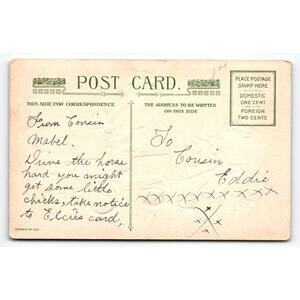 POST CARD.
THIS SIDE FOR CORRESPONDENCE
THE ADDRESS TO BE WRITTEN
ON THIS SIDE
PLACE POSTAGE
STAMP HERE
DOMESTIC
ONE CENT
FOREIGN
TWO CENTS
From Cousin
Mabel.
Drive the horse
hard you might
get some little
chicks, take notice
to Elsies card,
To
Cousin
Eddie
xxxxxxxxxxx